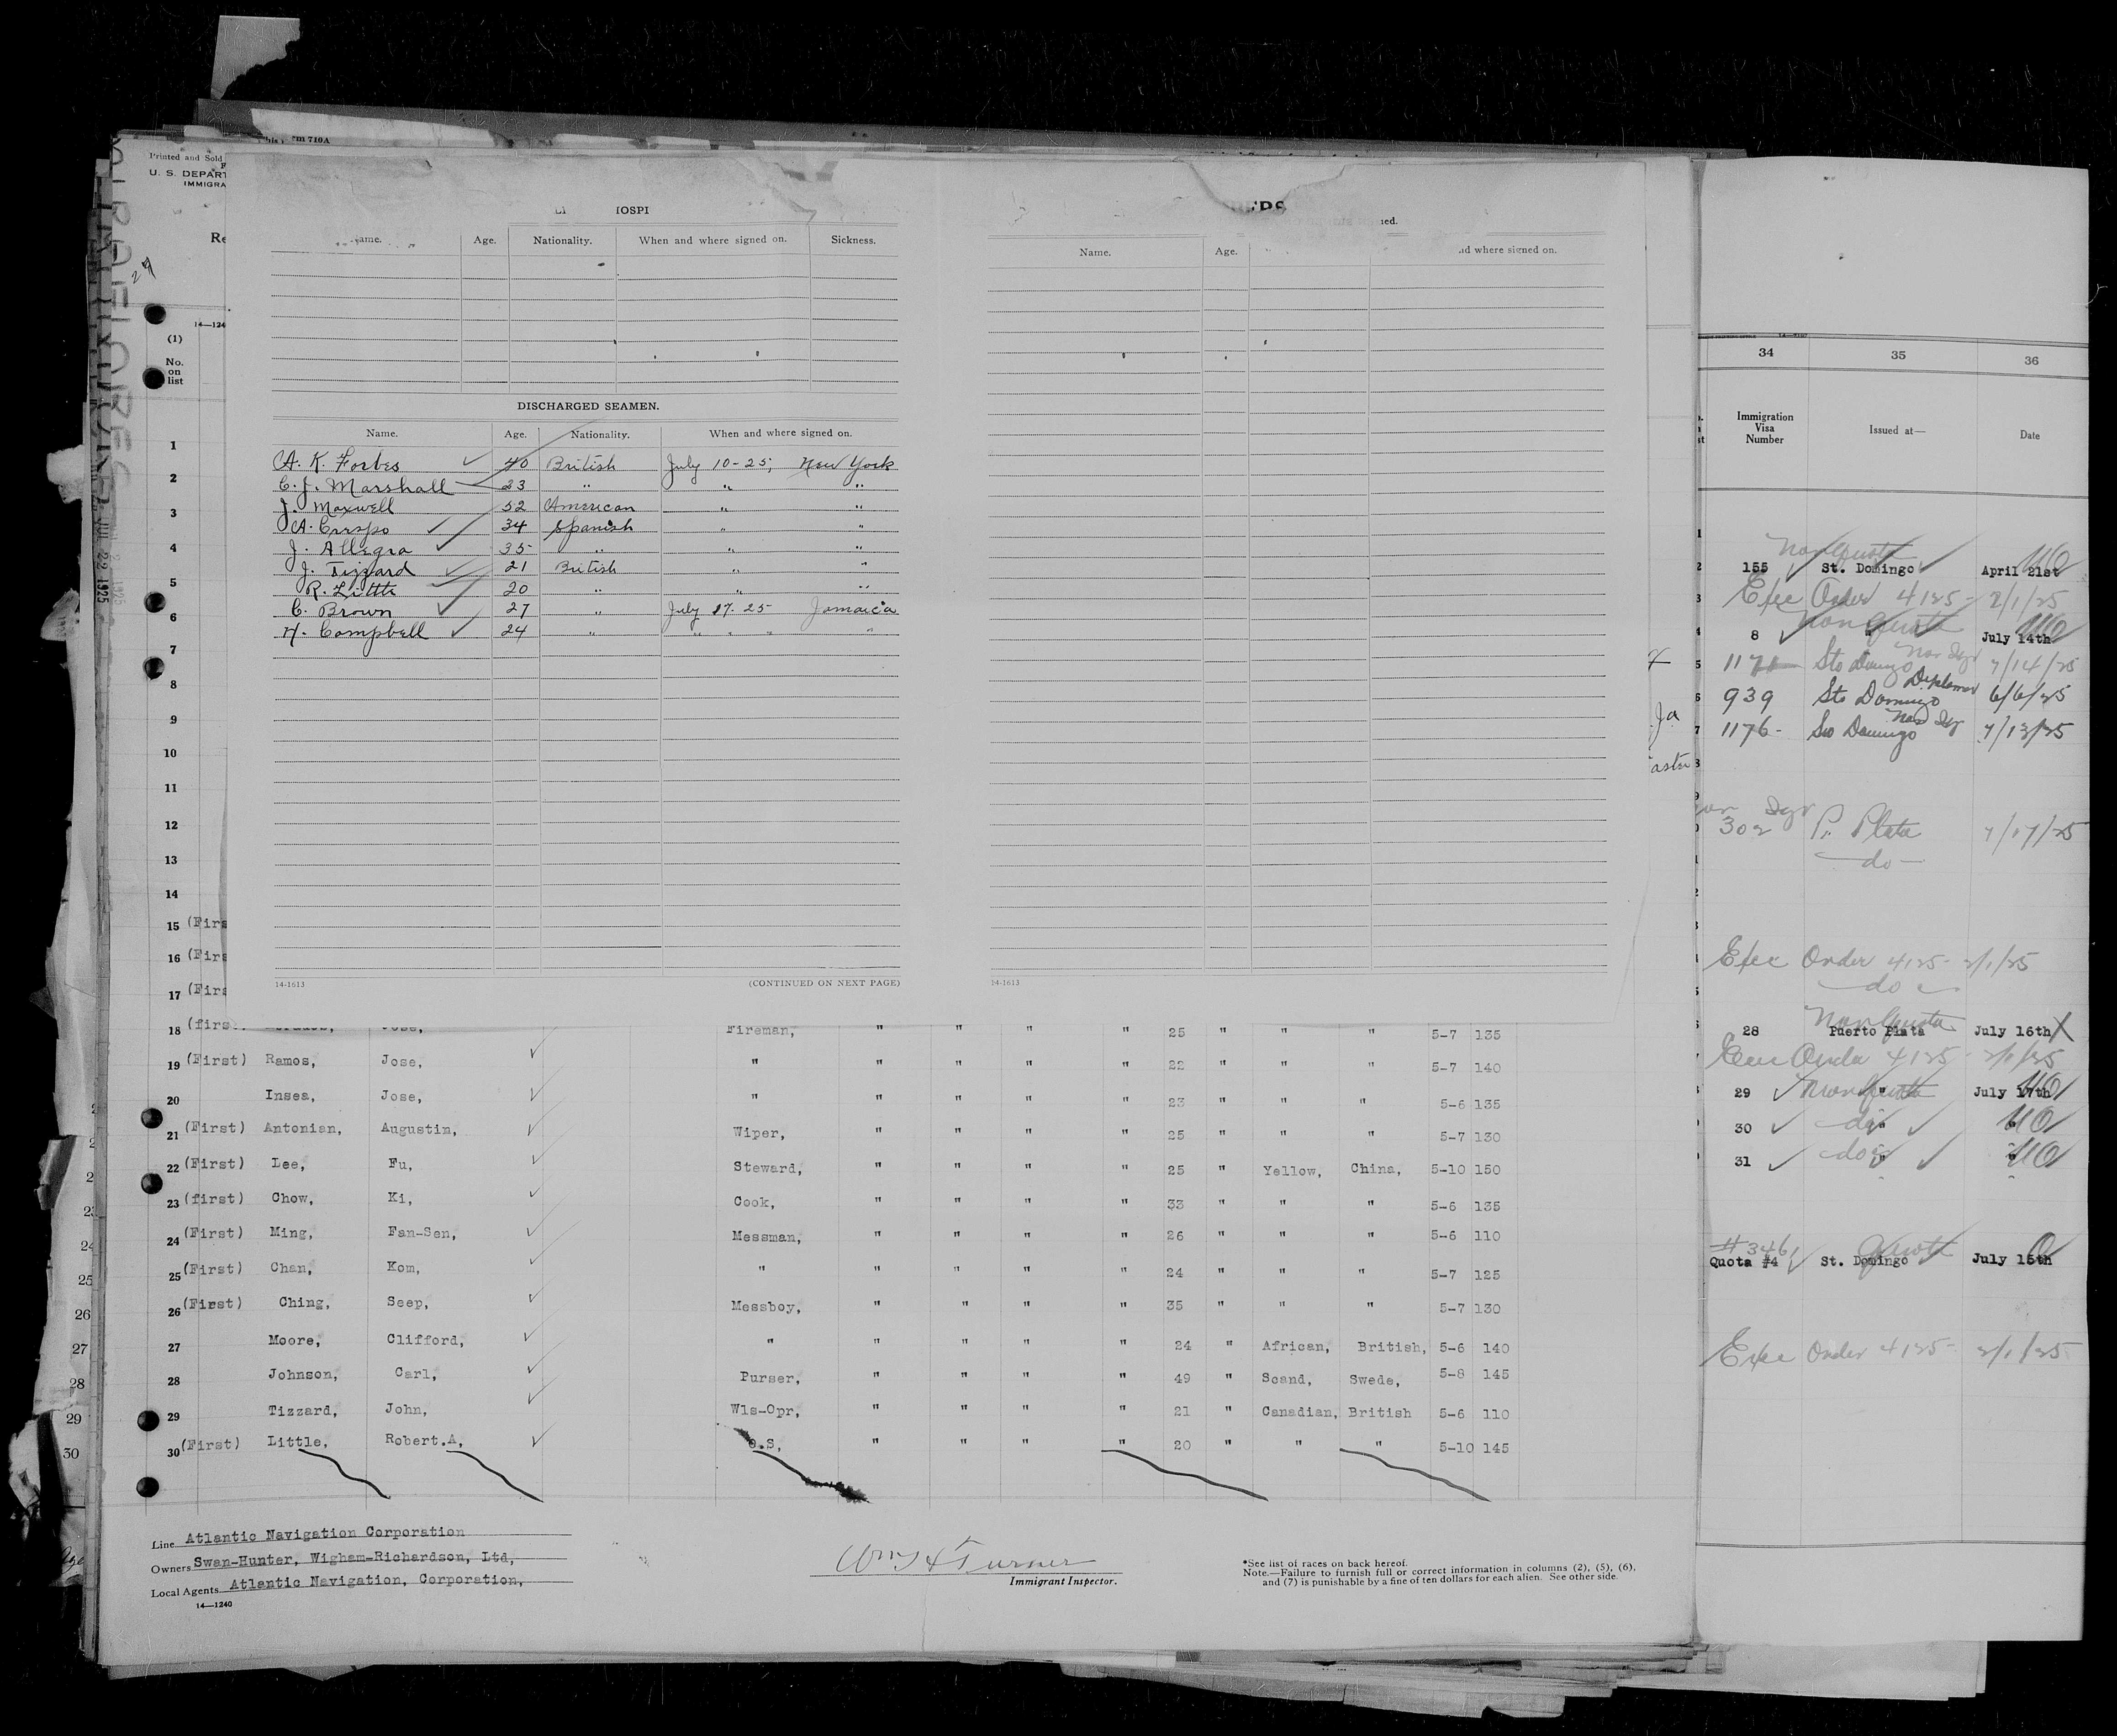 Printed and Sold
U. S. DEPART
IMMIGRA
Re
14—124
(1)
No.
on
list
JUL 22 1925
HOSPI
Name. Age. Nationality. When and where signed on. Sickness.
DISCHARGED SEAMEN.
Name. Age. Nationality. When and where signed on.
A. K. Forbes 40 British July 10-25, New York
C. J. Marshall 23 " " "
J. Maxwell 52 American " "
A. Crespo 34 Spanish " "
J. Allegra 35 " " "
J. Tizzard 21 British " "
R. Little 20 " " "
C. Brown 27 " July 17. 25 Jamaica
H. Campbell 24 " " " " "
14-1613 (CONTINUED ON NEXT PAGE)
ned.
Name. Age. nd where signed on.
14-1613
1
2
3
4
5
6
7
8
9
10
11
12
13
14
15 (Firs
16 (Firs
17 (Firs
18 (firs Jose, Fireman, " " " " 25 " " " 5-7 135
19 (First) Ramos, Jose, " " " " " 22 " " " 5-7 140
20 Insea, Jose, " " " " " 23 " " " 5-6 135
21 (First) Antonian, Augustin, Wiper, " " " " 25 " " " 5-7 130
22 (First) Lee, Fu, Steward, " " " " 25 " Yellow, China, 5-10 150
23 (first) Chow, Ki, Cook, " " " " 33 " " " 5-6 135
24 (First) Ming, Fan-Sen, Messman, " " " " 26 " " " 5-6 110
25 (First) Chan, Kom, " " " " " 24 " " " 5-7 125
26 (First) Ching, Seep, Messboy, " " " " 35 " " " 5-7 130
27 Moore, Clifford, " " " " " 24 " African, British, 5-6 140
28 Johnson, Carl, Purser, " " " " 49 " Scand, Swede, 5-8 145
29 Tizzard, John, Wls-Opr, " " " " 21 " Canadian, British 5-6 110
30 (First) Little, Robert.A, O.S, " " " " 20 " " " 5-10 145
Line Atlantic Navigation Corporation
Owners Swan-Hunter, Wigham-Richardson, Ltd,
Local Agents Atlantic Navigation, Corporation,
14—1240
Wm H Turner
Immigrant Inspector.
*See list of races on back hereof.
Note.—Failure to furnish full or correct information in columns (2), (5), (6),
and (7) is punishable by a fine of ten dollars for each alien. See other side.
34 35 36
Immigration
Visa
Number
Issued at—
Date
Non Quota
155 St. Domingo April 21st
Exec Order 4125- 2/1/25
Non Quota
8 " July 14th
1171 Sto Domingo 7/14/25
939 Sto Domingo Diplomat 6/6/25
1176- Sto Domingo 7/13/25
302 P. Plata 7/17/25
—do—
Exec Order 4125- 2/1/25
do
Non Quota
28 Puerto Plata July 16th X
Exec Order 4125- 2/1/25
29 Non Quota July 17th
30 do
31 do
#346
Quota #4 St. Domingo Quota July 15th
Exec Order 4125- 2/1/25
24
25
26
27
28
29
30